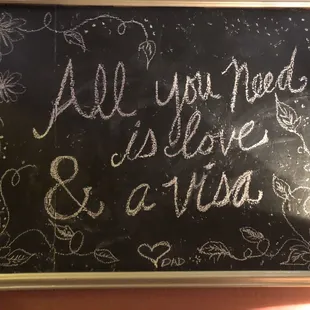 All you need
is love
& a visa
DAD